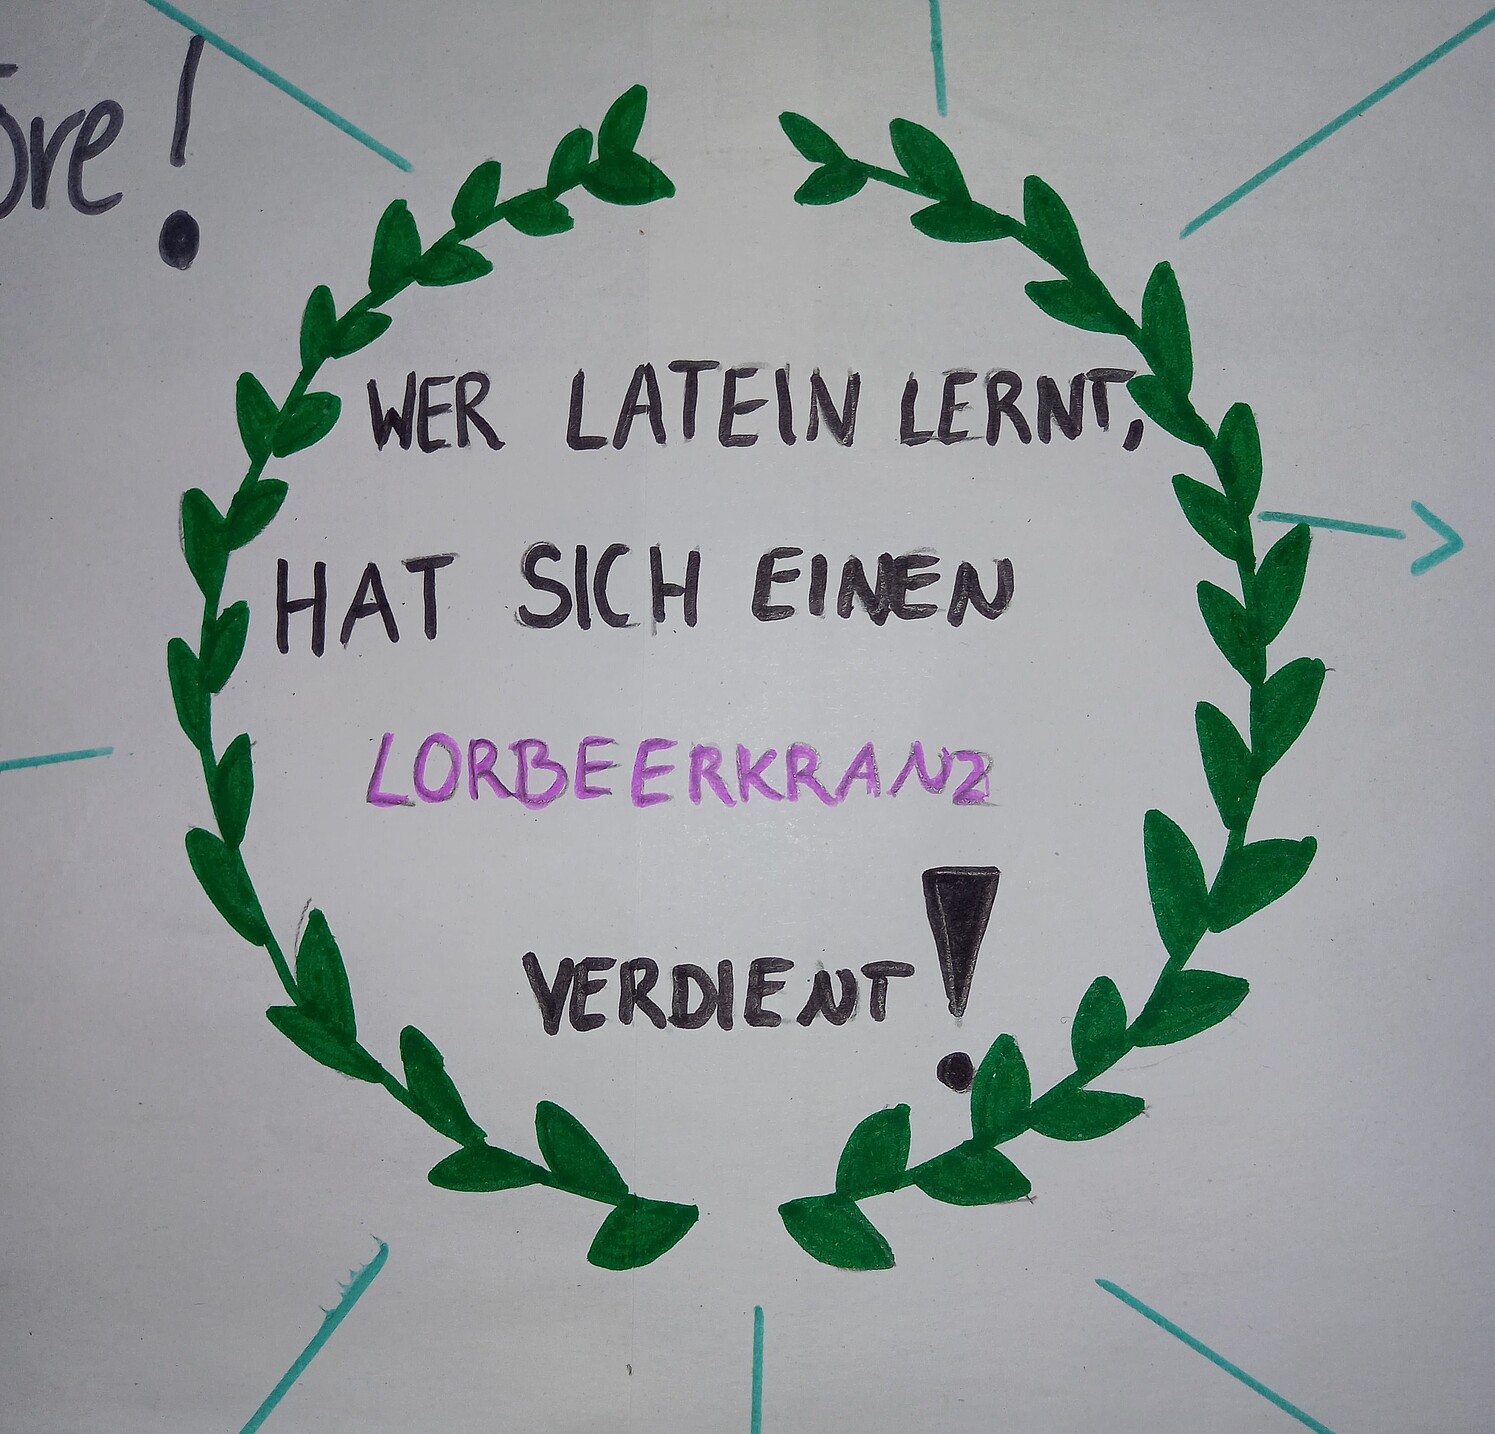 WER LATEIN LERNT,
HAT SICH EINEN
LORBEERKRANZ
VERDIENT!